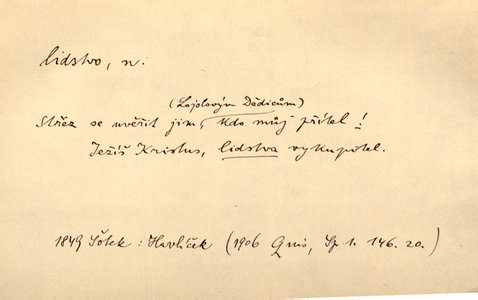 lidstvo, n.
(Lojolovým Dědicům)
Střez se uvěřit jim, kdo můj přítel!
Ježíš Kristus, lidstva vykupitel.
1849 Šólek : Havlíček (1906 Quis, Sp 1. 146. 20.)